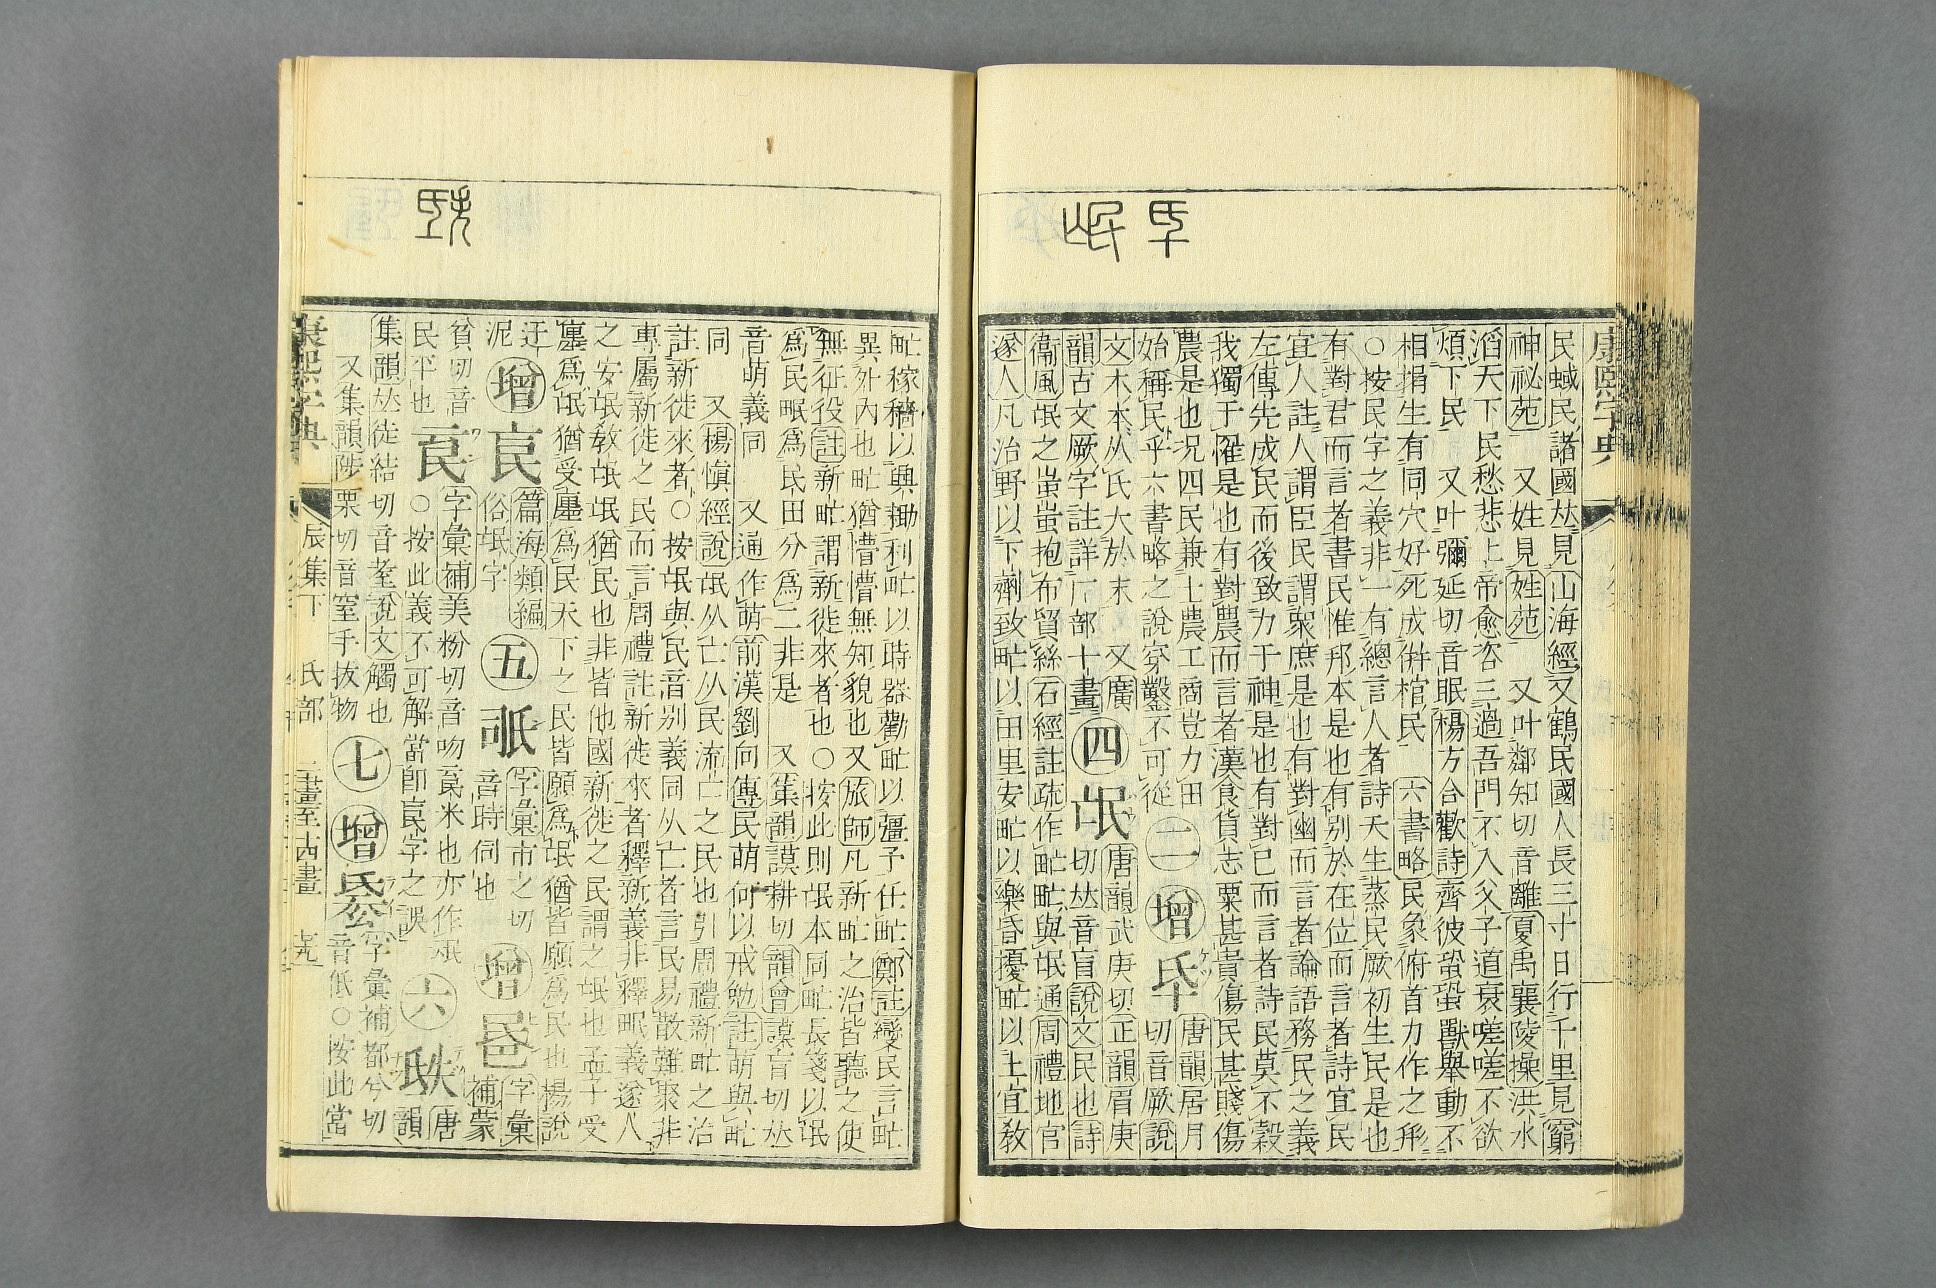 康熙字典
民蜮民諸國𠀤見山海經又鶴民國人長三寸日行千里見窮
神祕苑 又姓見姓苑 又叶鄰知切音離夏禹襄陵操洪水
滔天下民愁悲上帝愈咨三過吾門不入父子道衰嗟嗟不欲
煩下民 又叶彌延切音眠楊方合歡詩齊彼蛩蛩獸舉動不
相捐生有同穴好死成倂棺民 六書略民象俯首力作之形
○按民字之義非一有總言人者詩天生蒸民厥初生民是也
有對君而言者書民惟邦本是也有別於在位而言者詩宜民
宜人註人謂臣民謂衆庶是也有對幽而言者論語務民之義
左傳先成民而後致力于神是也有對已而言者詩民莫不穀
我獨于罹是也有對農而言者漢食貨志粟甚貴傷民甚賤傷
農是也况四民兼士農工商豈力田
始稱民乎六書略之說穿鑿不可從 二 增 氒 唐韻居月
切音厥說
文木本从氏大於末 又廣
韻古文厥字註詳厂部十畫 四 氓 唐韻武庚切正韻眉庚
切𠀤音盲說文民也詩
衞風氓之蚩蚩抱布貿絲石經註疏作甿甿與氓通周禮地官
遂人凡治野以下劑致甿以田里安甿以樂昏擾甿以土宜敎
甿稼穡以興耡利甿以時器勸甿以彊予任甿鄭註變民言甿
異外內也甿猶懵懵無知貌也又旅師凡新甿之治皆聽之使
無征役註新甿謂新徙來者也○按此則氓本同甿長箋以氓
爲民甿爲民田分爲二非是 又集韻謨耕切韻會謨盲切𠀤
音萌義同 又通作萌前漢劉向傳民萌何以戒勉註萌與甿
同 又楊愼經說氓从亡从民流亡之民也引周禮新甿之治
註新徙來者○按氓與民音別義同从亡者言民易散難聚非
專屬新徙之民而言周禮註新徙來者釋新義非釋甿義遂人
之安氓敎氓氓猶民也非皆他國新徙之民謂之氓也孟子受
廛爲氓猶受廛爲民天下之民皆願爲氓猶皆願爲民也楊說
迂
泥 增 䘐 篇海類編
俗氓字 五 䟗 字彙市之切
音時伺也 增 𣱅 字彙
補蒙
貧切音
民平也 𣱆 字彙補美粉切音吻𣱆米也亦作𣱇
○按此義不可解當卽𣱆字之誤 六 𣱈 唐
韻
集韻𠀤徒結切音耊說文觸也
又集韻陟栗切音窒手拔物 七 增 字彙補都兮切
音低○按此當
康熙字典
辰集下 氏部
一畫至十四畫